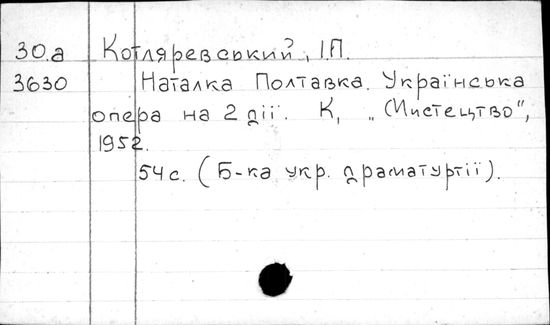 30.а Котляревський, І.П.
3630 Наталка Полтавка. Українська
опера на 2 дії. К, „Мистецтво",
1952.
54с. (Б-ка укр. драматургії).